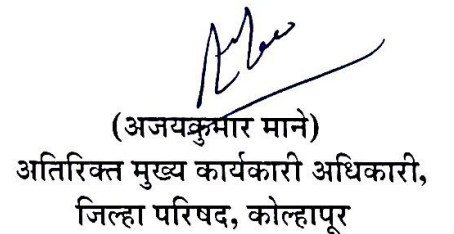 (अजयकुमार माने)
अतिरिक्त मुख्य कार्यकारी अधिकारी,
जिल्हा परिषद, कोल्हापूर